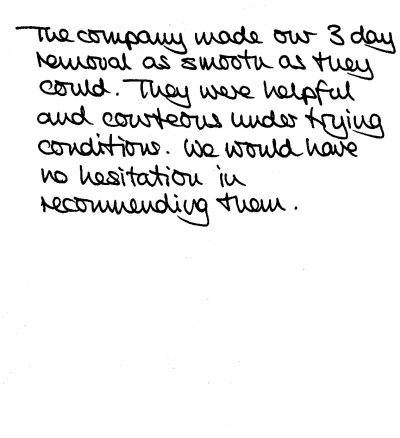 The company made our 3 day
removal as smooth as they
could. They were helpful
and courteous under trying
conditions. We would have
no hesitation in
recommending them.